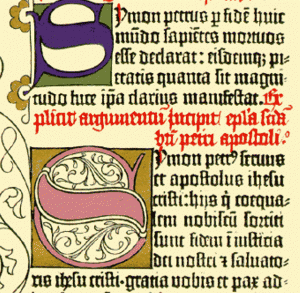 Symon petrus ꝑ fidē huic
mūdo sapiētes mortuos
esse declarat: eisdemqꝫ pi
etatis quanta sit magni
tudo luce ip̄a clarius manifestat. Ex
plicit argumentū Incipit ep̄la scd̄a
bti petri apostoli.
Symon petrꝰ servus
et apostolus ihesu
cristi: hijs q̄ coequa
lem nobiscū sortiti
sunt fidem ī iusticia
dei nostri et salvato
ris ihesu cristi. gratia vobis et pax ad